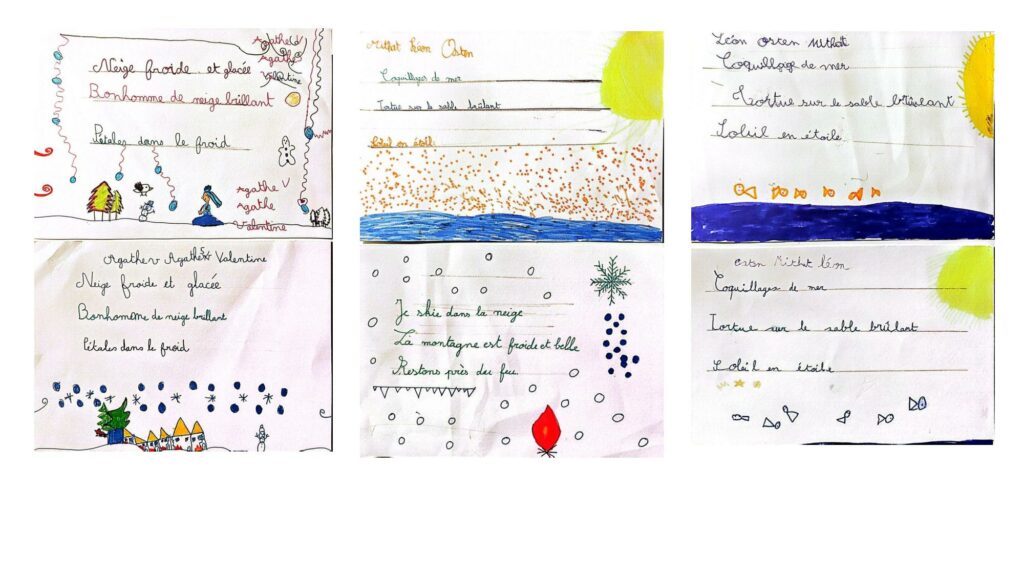 Agathe V
Agathe
Valentine
Neige froide et glacée
Bonhomme de neige brillant
Pétales dans le froid
Agathe V
Agathe
Valentine
Mithat Léon Osten
Coquillages de mer
Tortue sur le sable brûlant
Soleil en étoile
Léon Osten Mithat
Coquillage de mer
Tortue sur le sable brûlant
Soleil en étoile
Agathe v Agathe Valentine
Neige froide et glacée
Bonhomme de neige brillant
Pétales dans le froid
Je skie dans la neige
La montagne est froide et belle
Restons près du feu
Osten Mithat Léon
Coquillages de mer
Tortue sur le sable brûlant
Soleil en étoile